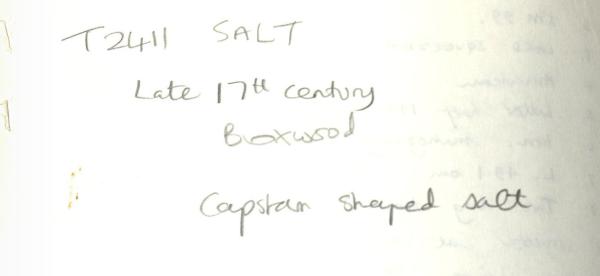 T2411 SALT
Late 17th century
Boxwood
Capstan shaped salt